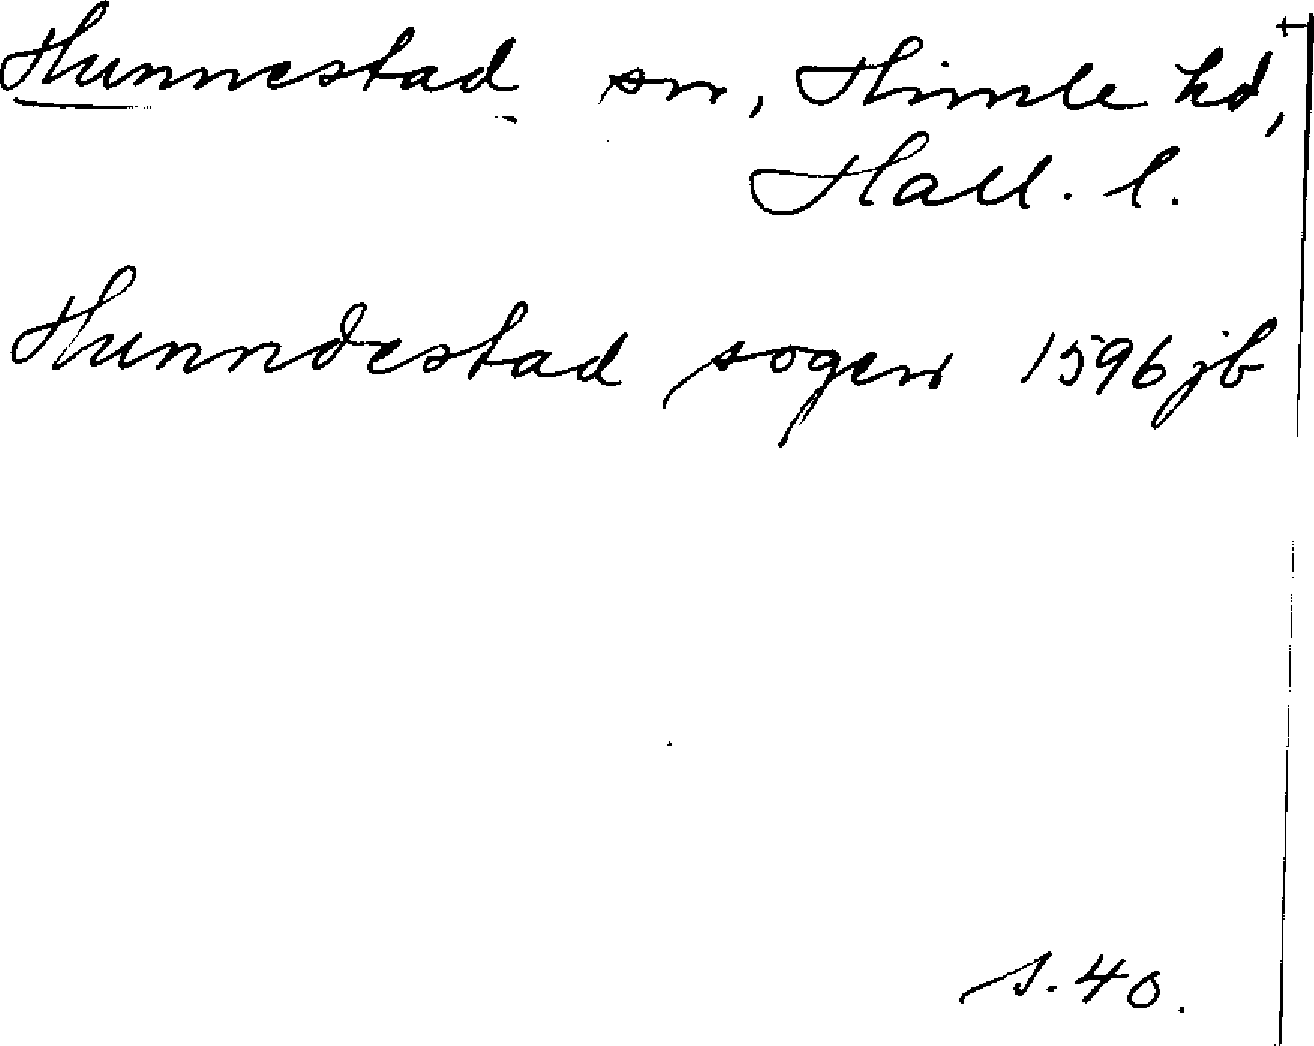 Hunnestad sn, Himle hd,
Hall. l.
Hunndestad sogen 1596 jb
s. 40.